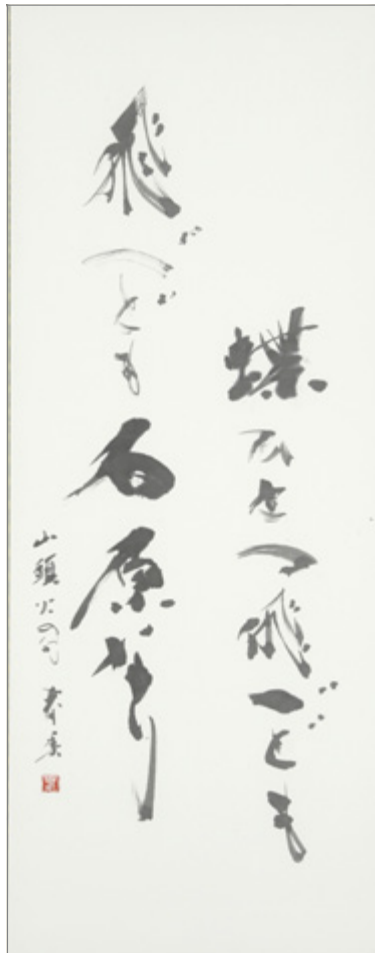 蝶ひとつ飛べども
飛べども石原なり
山頭火の句